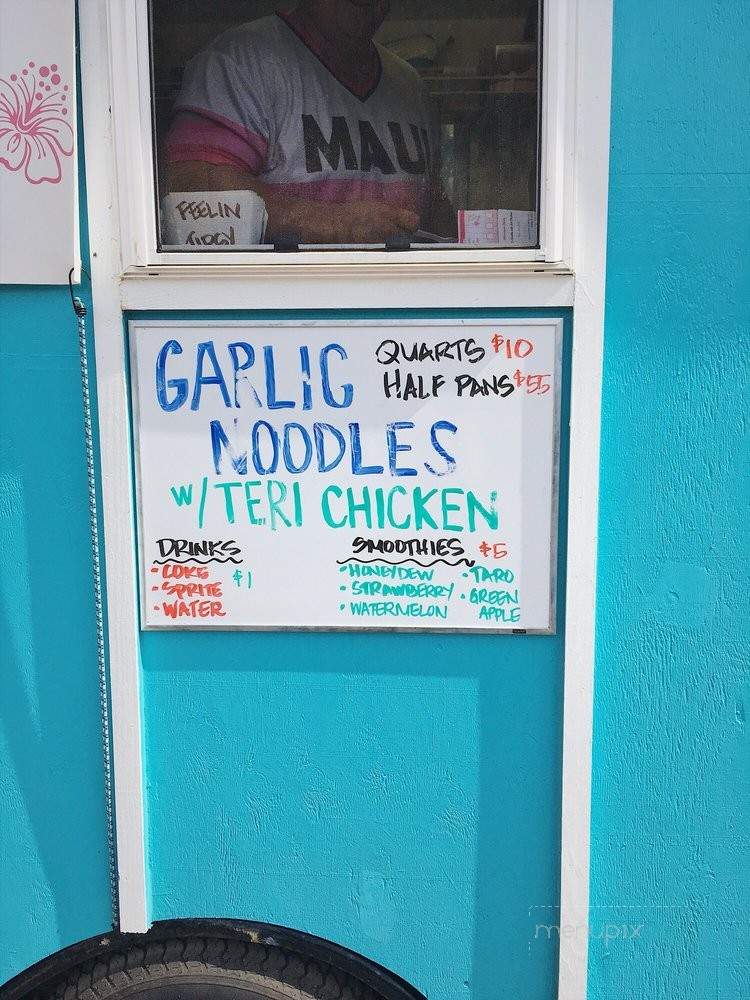 MAUI
FEELIN
TIPSY
GARLIC
NOODLES
W/TERI CHICKEN
QUARTS $10
HALF PANS $55
DRINKS
• COKE
• SPRITE
• WATER
$1
SMOOTHIES $5
• HONEYDEW
• STRAWBERRY
• WATERMELON
• TARO
• GREEN
APPLE
menupix